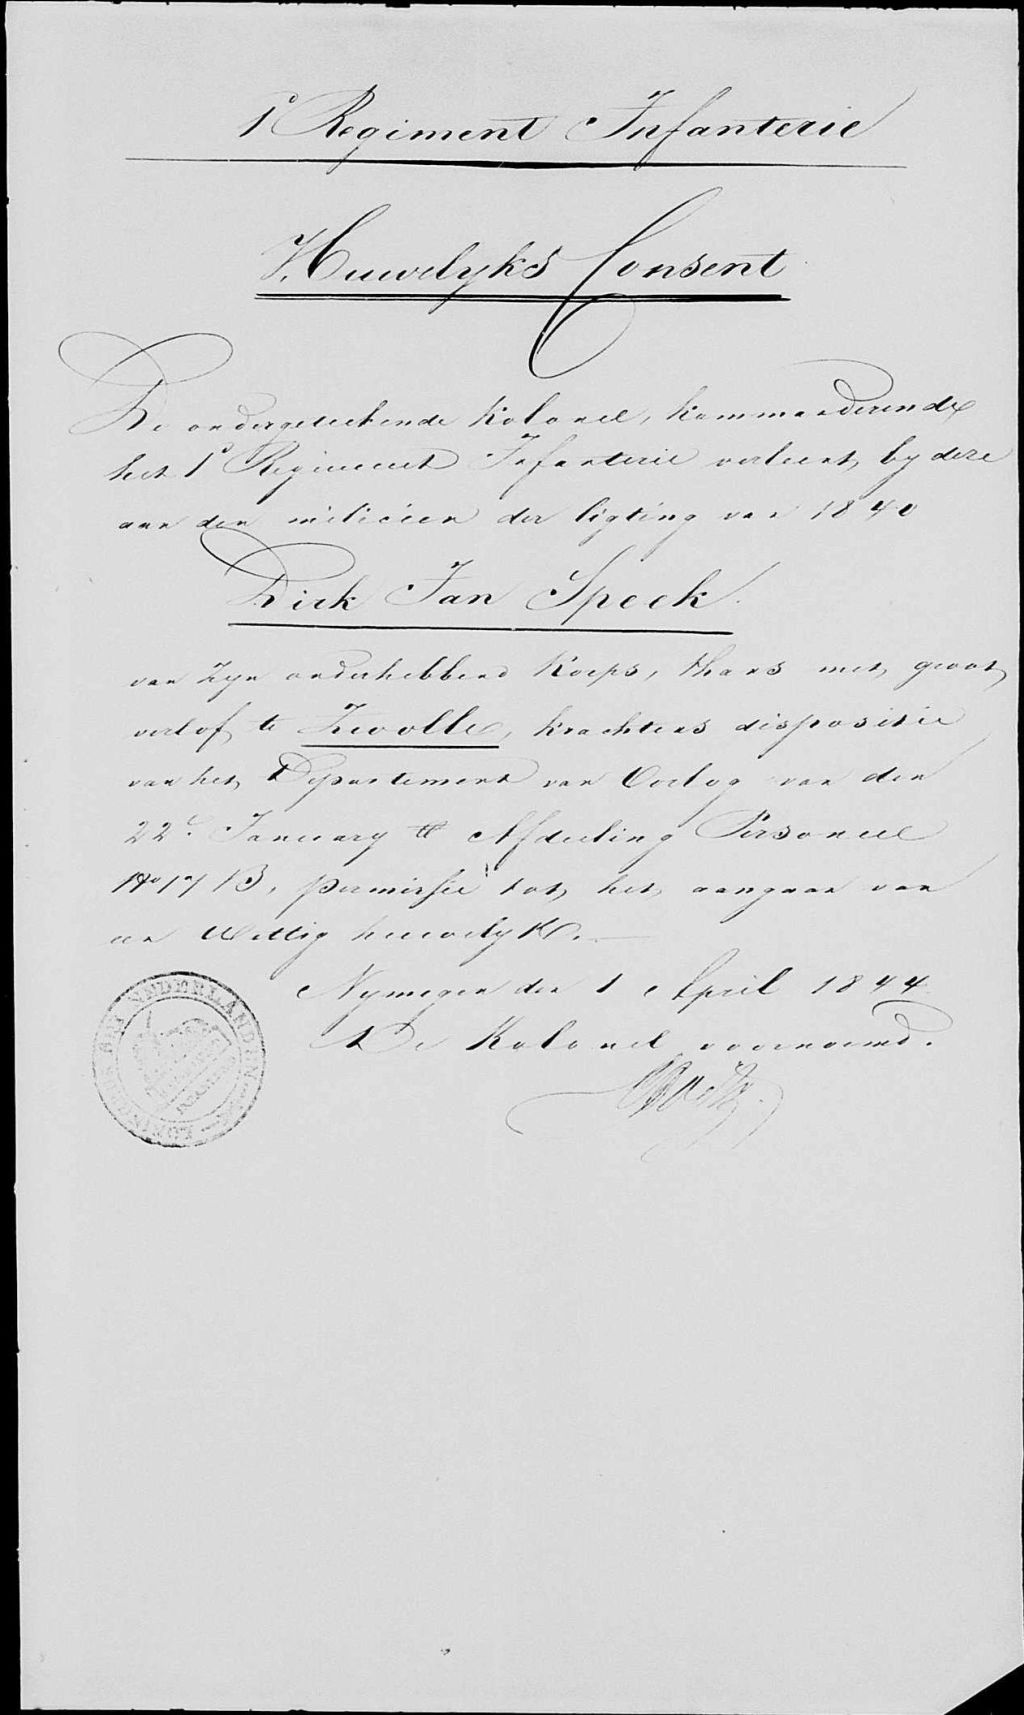 1e Regiment Infanterie
Huwelyks Consent
De ondergeteekende Kolonel, kommanderende
het 1e Regiment Infanterie verleent by deze
aan den milicien der ligting van 1840
Dirk Jan Speek
van zyn onderhebbend Korps, thans met groot
verlof te Zwolle, krachtens dispositie
van het Departement van Oorlog van den
22e January ll Afdeeling Personeel
No 17 B, permissie tot het aangaan van
een Wettig huwelyk.
Nymegen den 1 April 1844
De Kolonel voornoemd.